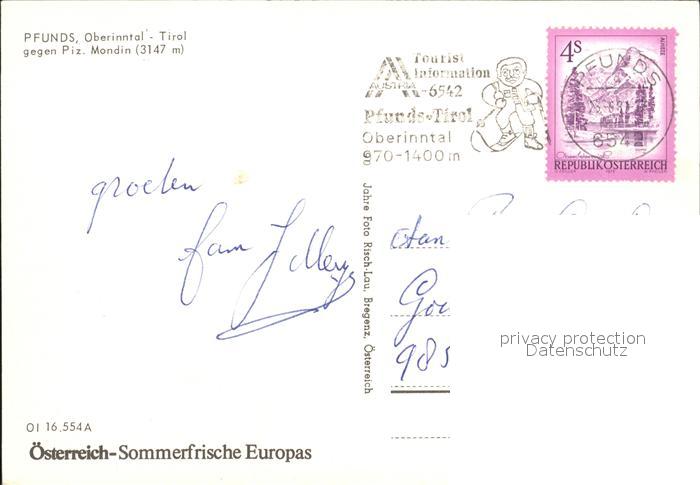 PFUNDS, Oberinntal - Tirol
gegen Piz. Mondin (3147 m)
Tourist
Information
AUSTRIA
-6542
Pfunds-Tirol
Oberinntal
970-1400 m
4S
ALMSEE
REPUBLIK ÖSTERREICH
PFUNDS
654
groeten
fam J
Jahre Foto Risch-Lau, Bregenz, Österreich
privacy protection
Datenschutz
985
OI 16.554A
Österreich-Sommerfrische Europas